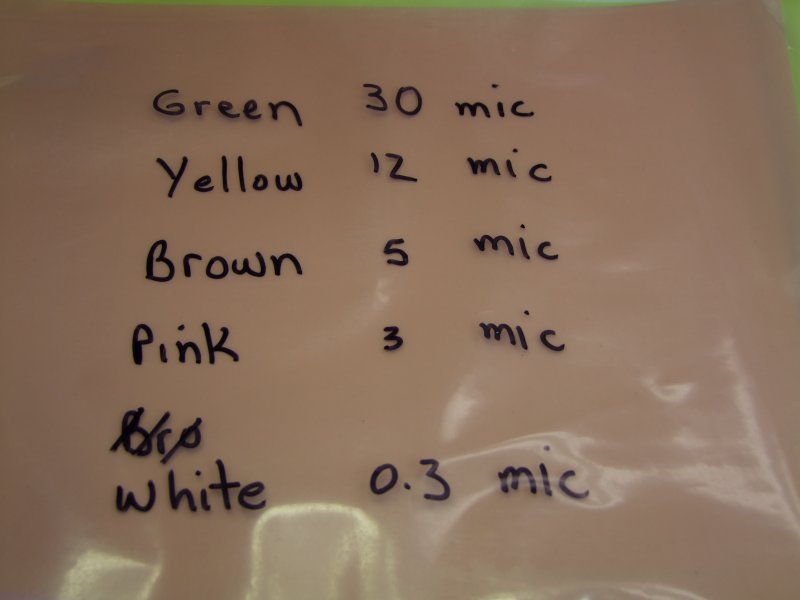 Green 30 mic
Yellow 12 mic
Brown 5 mic
Pink 3 mic
Bro
White 0.3 mic